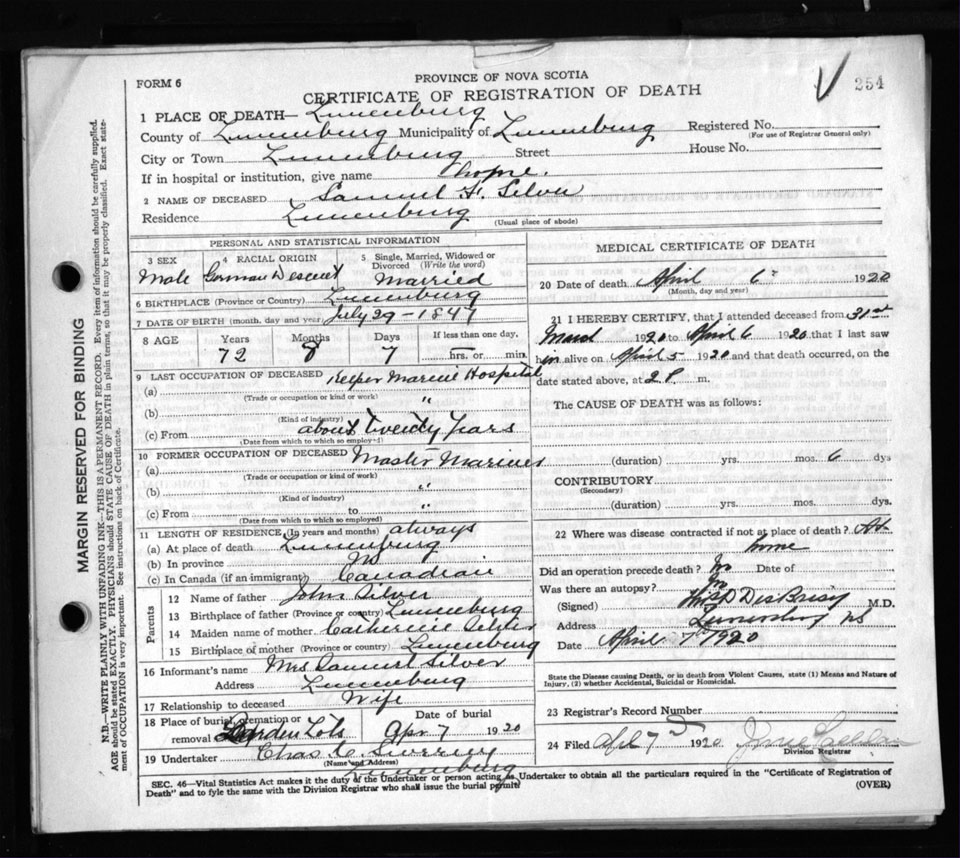 FORM 6
PROVINCE OF NOVA SCOTIA
CERTIFICATE OF REGISTRATION OF DEATH
254
1 PLACE OF DEATH— Lunenburg
County of Lunenburg Municipality of Lunenburg Registered No.
(For use of Registrar General only)
City or Town Lunenburg Street House No.
If in hospital or institution, give name home.
2 NAME OF DECEASED Samuel Silver
Residence Lunenburg
(Usual place of abode)
PERSONAL AND STATISTICAL INFORMATION
3 SEX
Male
4 RACIAL ORIGIN
German Descent
5 Single, Married, Widowed or Divorced (Write the word)
Married
6 BIRTHPLACE (Province or Country) Lunenburg
7 DATE OF BIRTH (month, day and year) July 29 - 1847
8 AGE Years Months Days If less than one day,
72 8 7 hrs. or min.
9 LAST OCCUPATION OF DECEASED Keeper Marine Hospital
(a)
(Trade or occupation or kind or work)
(b) "
(Kind of industry)
(c) From about twenty years
(Date from which to which so employed)
10 FORMER OCCUPATION OF DECEASED Master Mariner
(a)
(Trade or occupation or kind of work)
(b) "
(Kind of industry)
(c) From to
(Date from which to which so employed)
11 LENGTH OF RESIDENCE (In years and months) always
(a) At place of death Lunenburg
(b) In province
(c) In Canada (if an immigrant) Canadian
Parents
12 Name of father John Silver
13 Birthplace of father (Province or country) Lunenburg
14 Maiden name of mother Catherine
15 Birthplace of mother (Province or Country) Lunenburg
16 Informant's name Mrs Samuel Silver
Address Lunenburg
17 Relationship to deceased Wife
18 Place of burial, cremation or removal Garden Lots
Date of burial
Apr 7 1920
19 Undertaker Chas
(Name and Address)
Lunenburg
MEDICAL CERTIFICATE OF DEATH
20 Date of death April 6 1920
(Month, day and year)
21 I HEREBY CERTIFY, that I attended deceased from 31st
March 1920 to April 6 1920 that I last saw
him alive on April 5 1920 and that death occurred, on the
date stated above, at 2 P. m.
The CAUSE OF DEATH was as follows:
(duration) yrs. mos. 6 dys
CONTRIBUTORY
(Secondary)
(duration) yrs. mos. dys.
22 Where was disease contracted if not at place of death? At
home
Did an operation precede death? No Date of
Was there an autopsy? No
(Signed) DesBrisay M.D.
Address Lunenburg NS
Date April 7 1920
State the Disease causing Death, or in death from Violent Causes, state (1) Means and Nature of
Injury, (2) whether Accidental, Suicidal or Homicidal.
23 Registrar's Record Number
24 Filed Apl 7 1920
Division Registrar
SEC. 46—Vital Statistics Act makes it the duty of the Undertaker or person acting as Undertaker to obtain all the particulars required in the "Certificate of Registration of
Death" and to fyle the same with the Division Registrar who shall issue the burial permit.
(OVER)
MARGIN RESERVED FOR BINDING
N.B.—WRITE PLAINLY WITH UNFADING INK—THIS IS A PERMANENT RECORD. Every item of information should be carefully supplied.
AGE should be stated EXACTLY. PHYSICIANS should STATE CAUSE OF DEATH in plain terms, so that it may be properly classified. Exact state-
ment of OCCUPATION is very important. See instructions on back of Certificate.